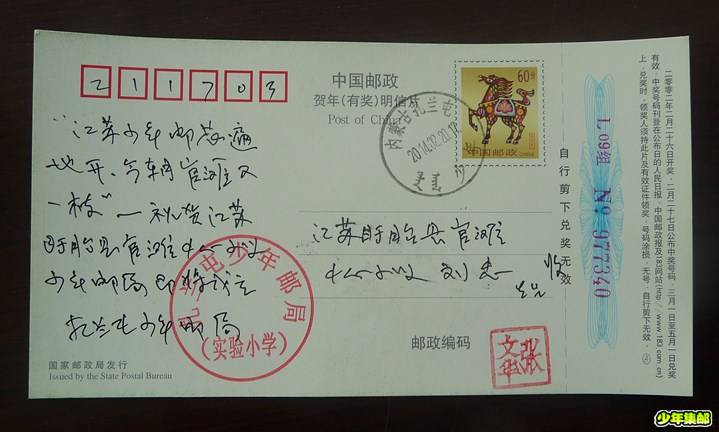 211703
中国邮政
贺年(有奖)明信片
Post of China
60分
中国邮政
内蒙古扎兰屯
2014.12.20.12
"江苏少年邮局遍
地开,今朝官滩又
一枝"—祝贺江苏
盱眙县官滩中心小学
少年邮局即将成立
扎兰屯少年邮局
扎兰屯少年邮局
(实验小学)
江苏盱眙县官滩
中心小学 刘忠 收
邮政编码
张文华
国家邮政局发行
Issued by the State Postal Bureau
自行剪下兑奖无效
L 09组 Nº 977340
二零零二年二月二十六日开奖,二月二十七日公布中奖号码,三月一日至五月一日兑奖
有效。中奖号码刊登在公布日的人民日报、中国邮政报及183网站(http://www.183.com.cn)
上。兑奖时,领奖人须持此片及有效证件领奖。号码涂损、无号、自行剪下无效。
少年集邮